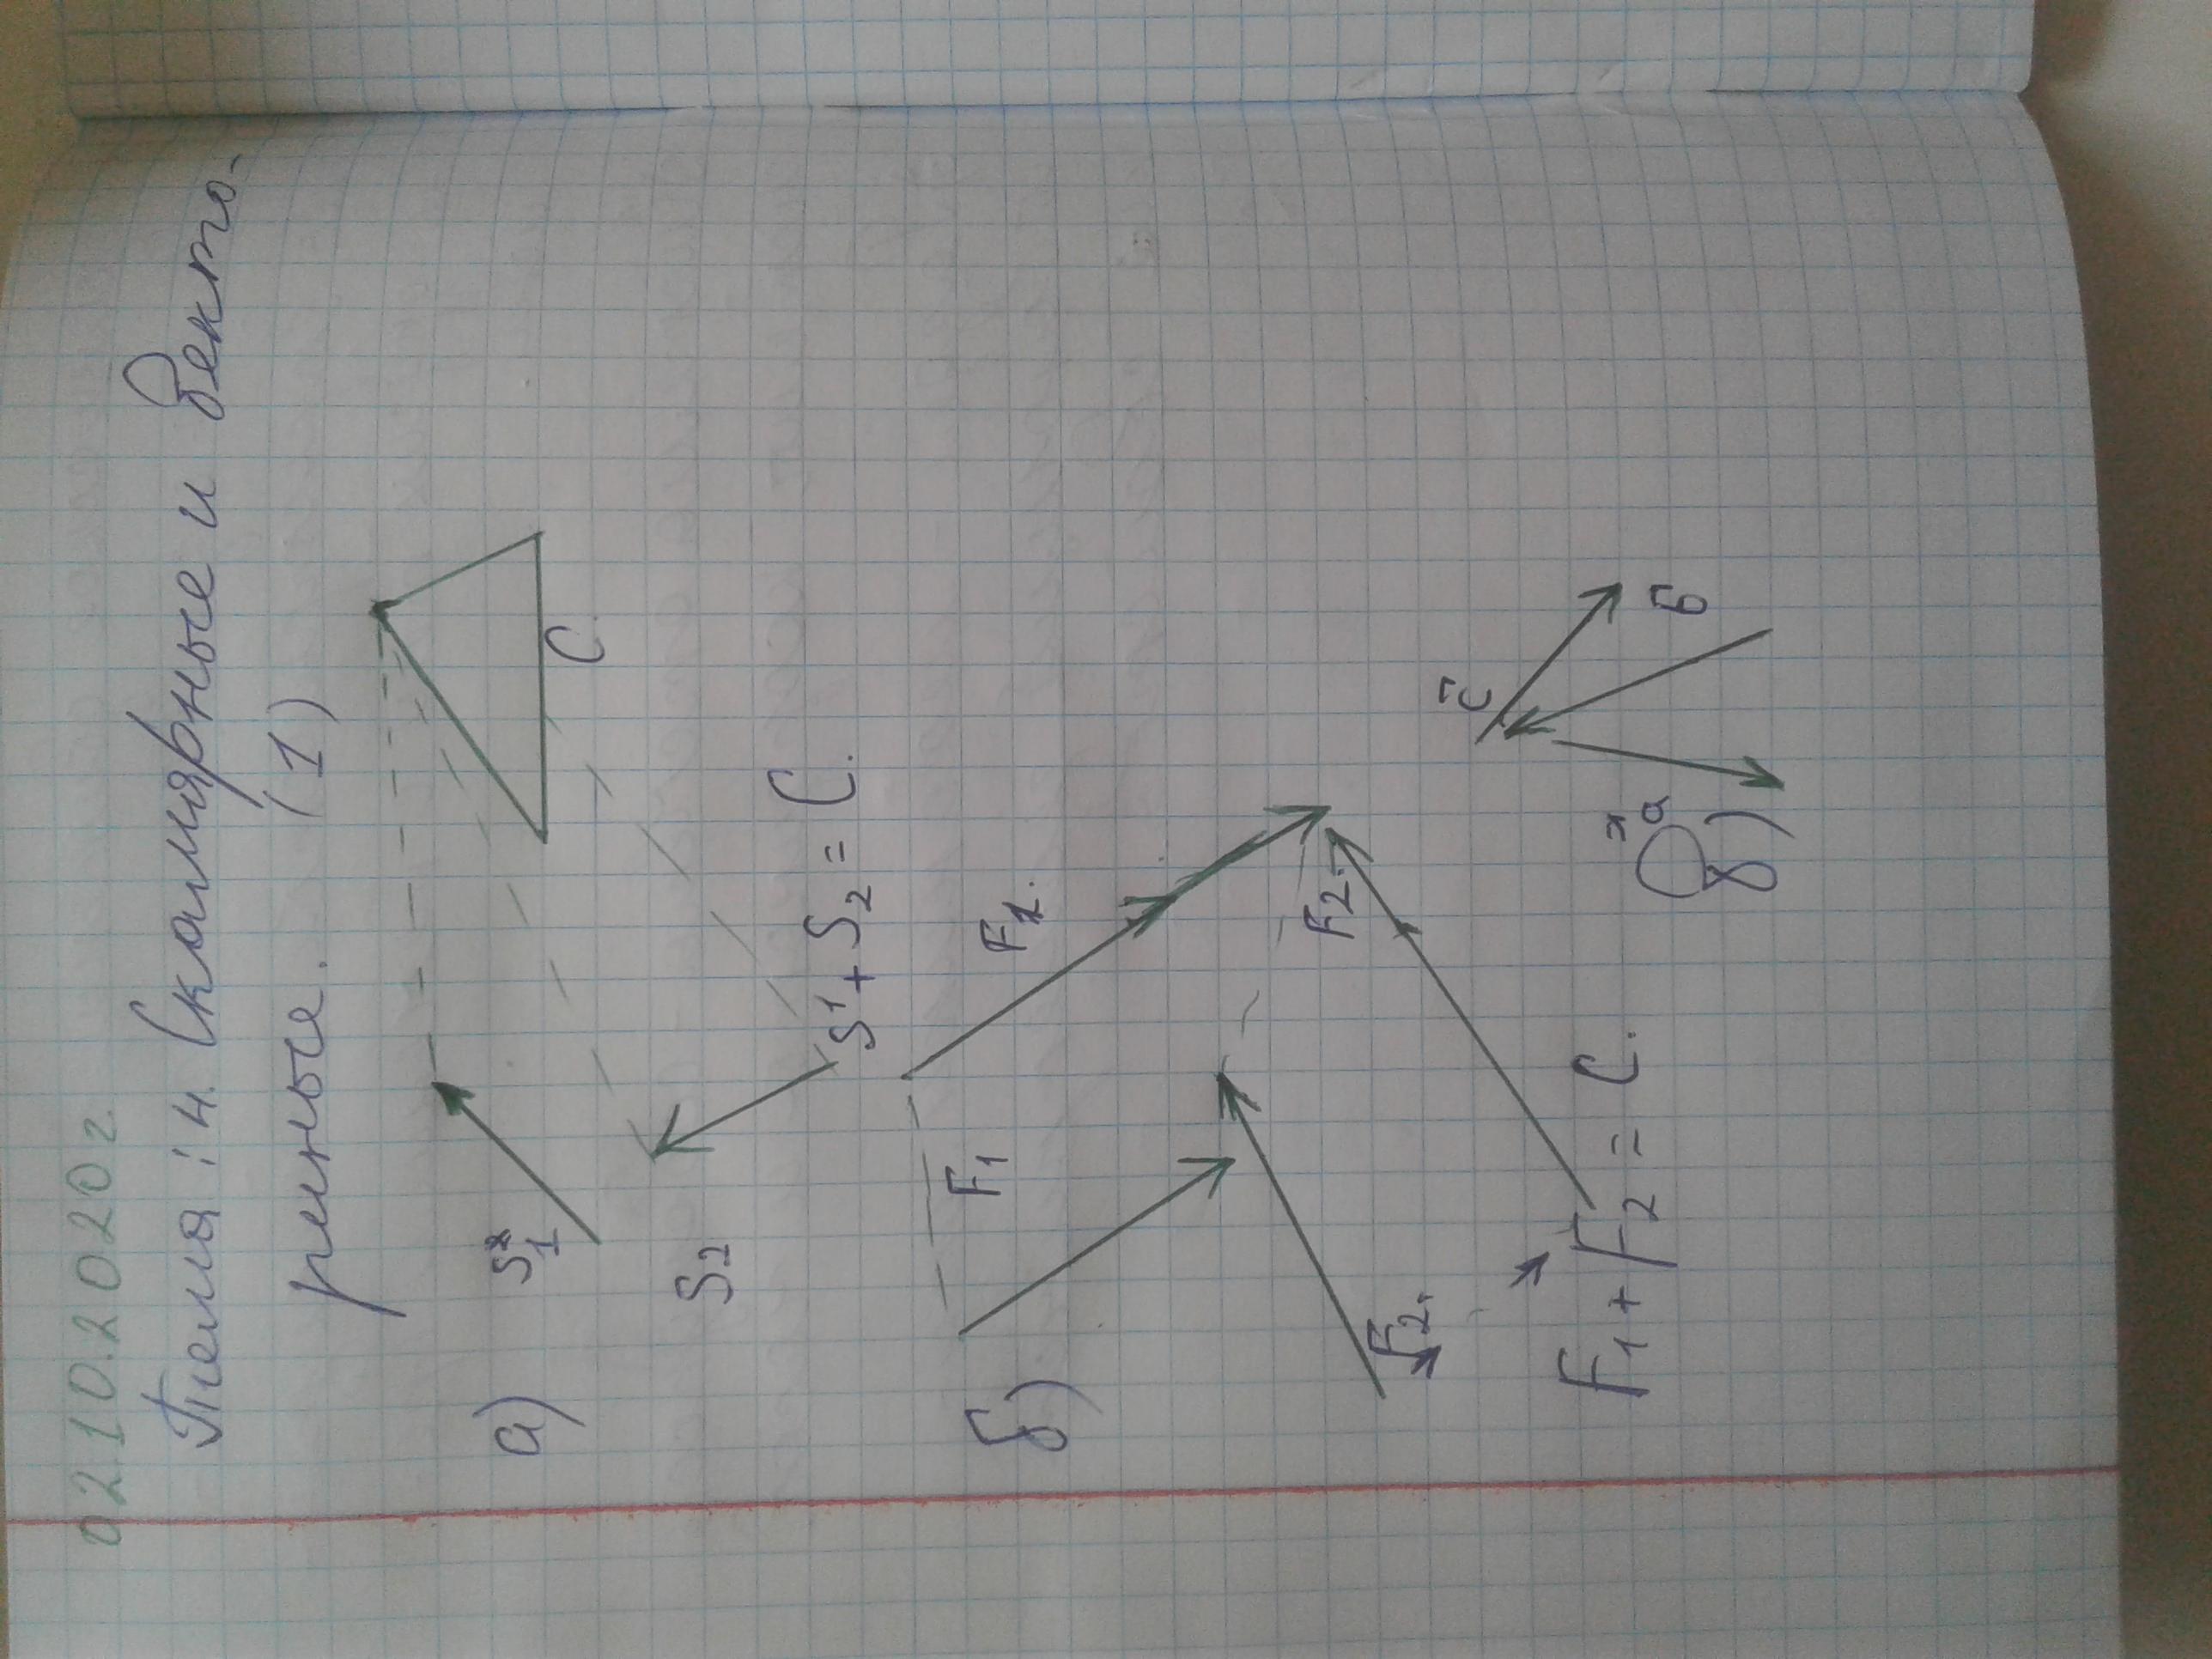 02.10.2020 г.
Тема: н. Скалярные и векто-
ренные. (1)
а)
S1
C
S2
S1 + S2 = C.
б)
F1
F1.
F2.
F2.
F1 + F2 = C.
в)
a
c
б